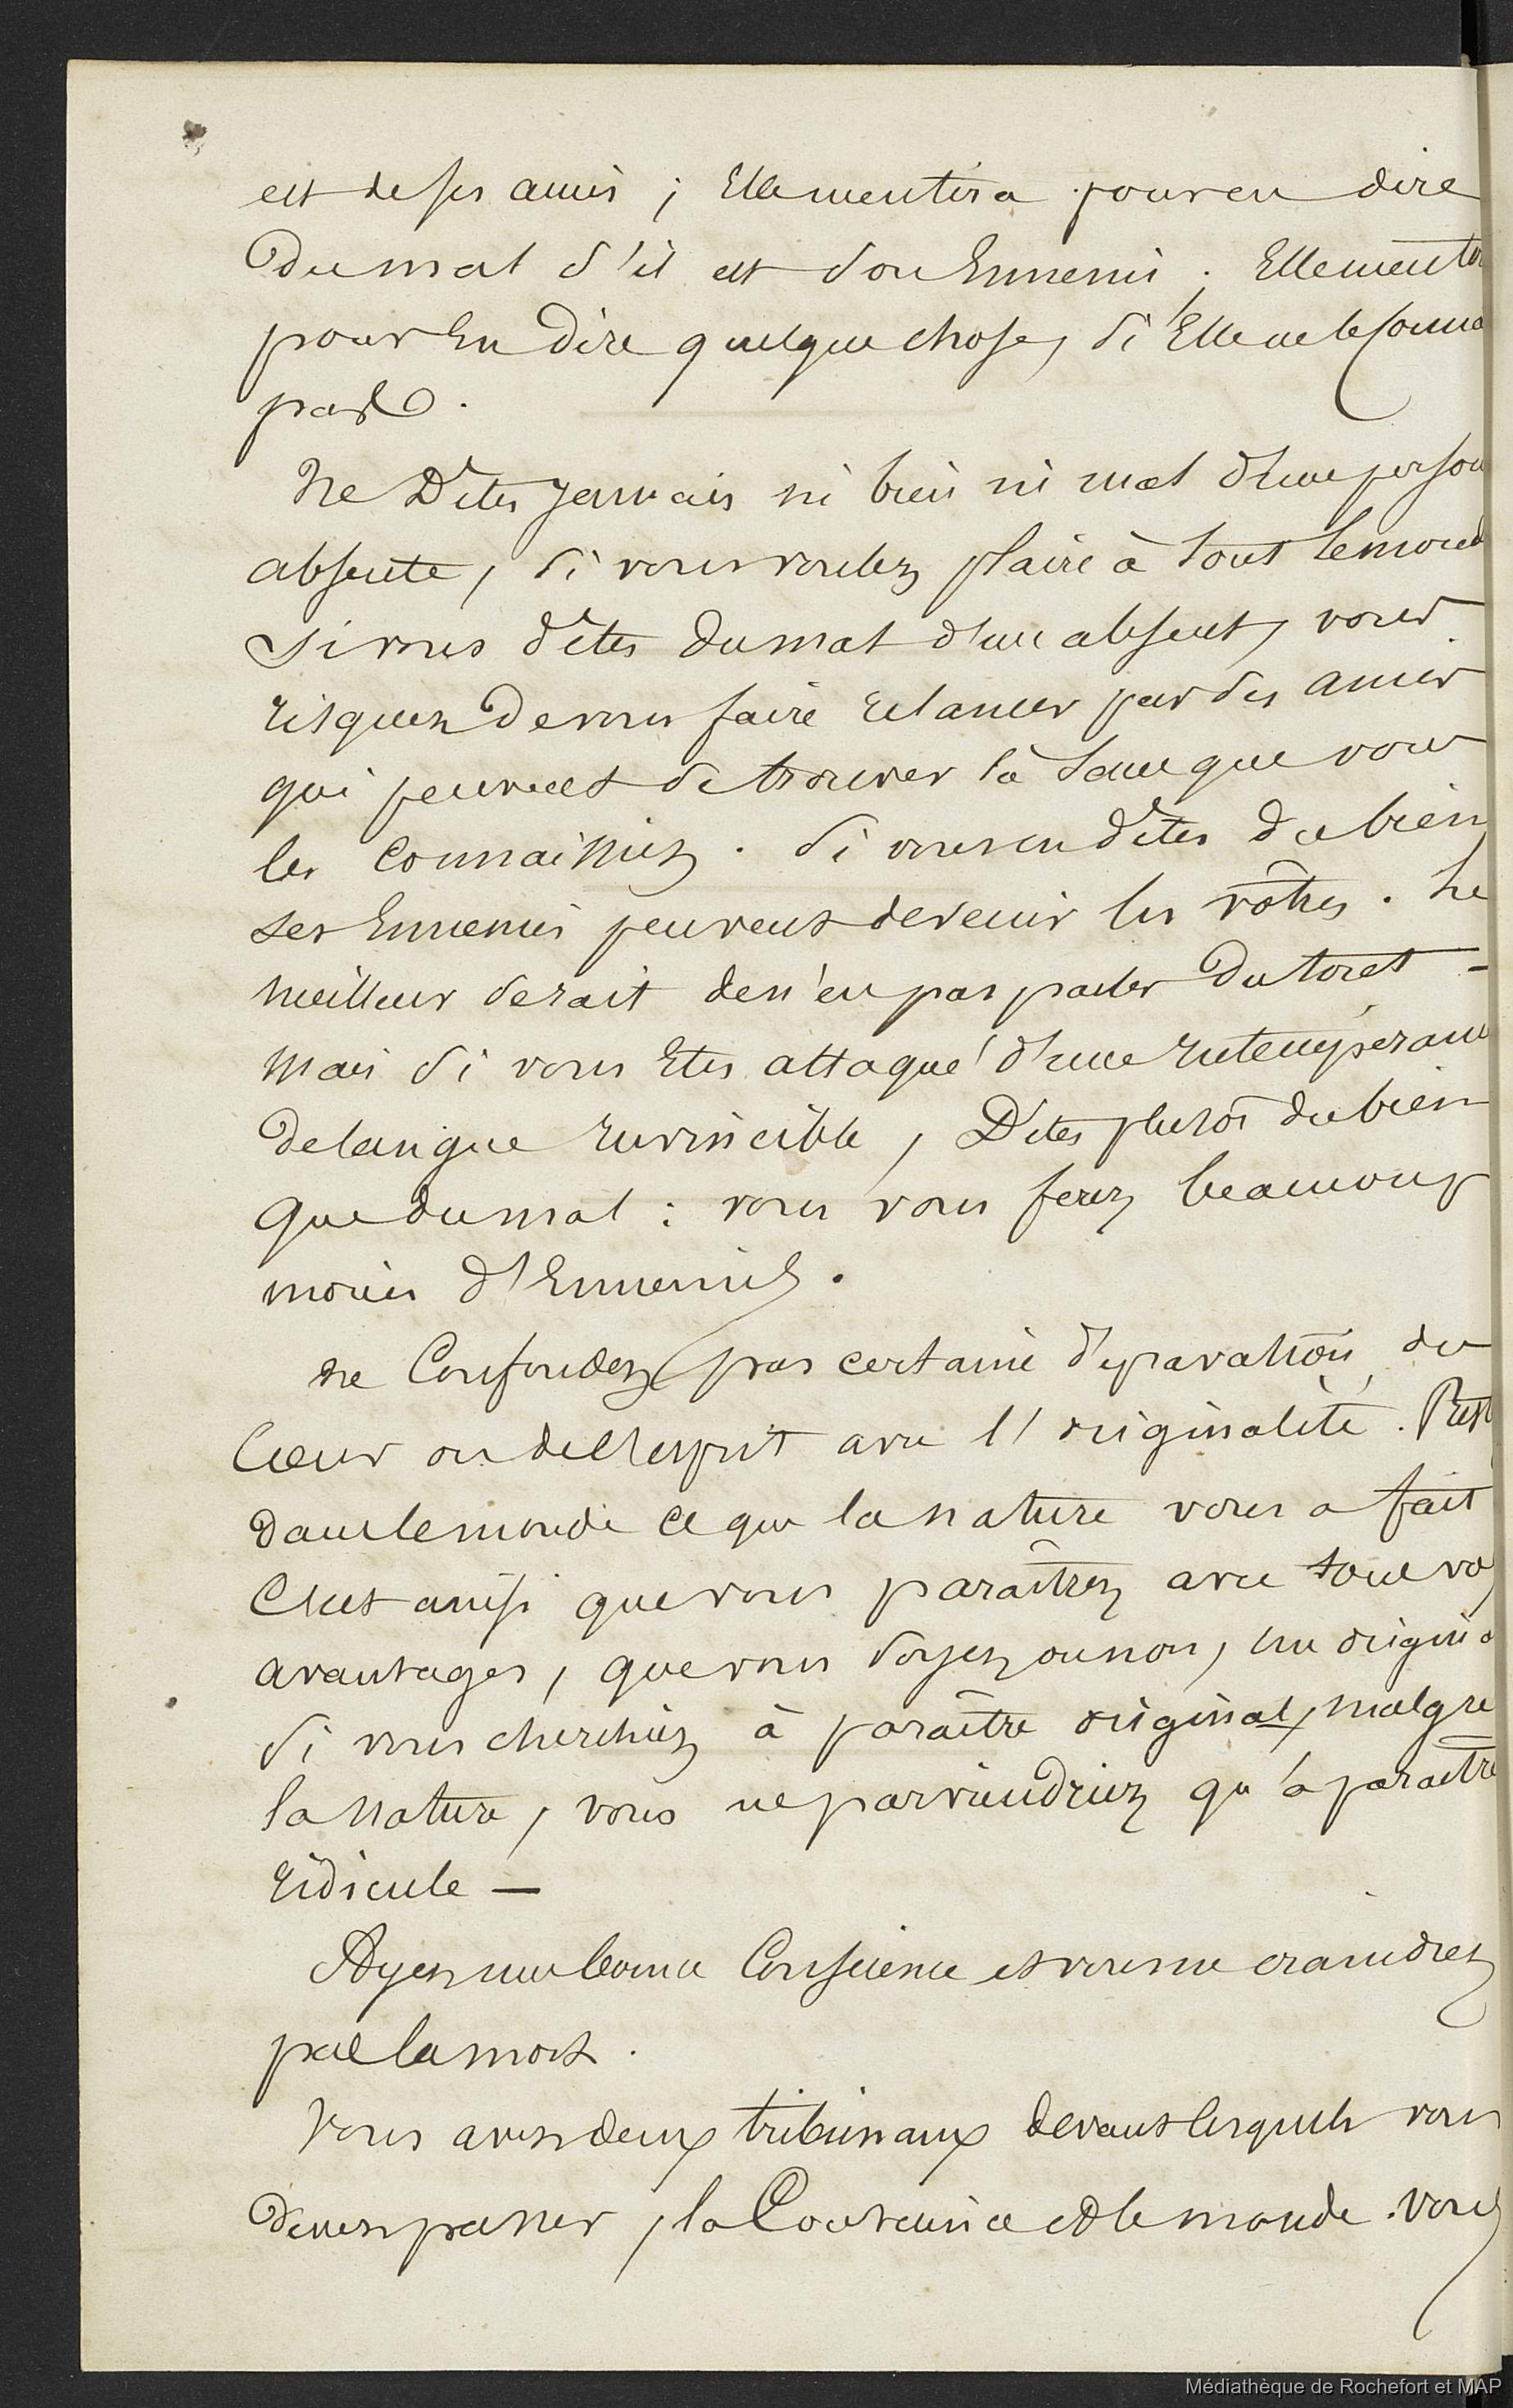 est de ses amis ; Elle mentira pour en dire
du mal s'il est son Ennemi ; Elle mentira
pour En dire quelque chose, si Elle ne le connai
pas.
Ne Dites jamais ni bien ni mal d'une person
absente, si vous voulez plaire à tout le mond
si vous dites du mal d'un absent, vous
risquez de vous faire relancer par des amis
qui peuvent se trouver là sans que vous
les connaissiez. si vous en dites du bien,
ses Ennemis peuvent devenir les vôtres. Le
meilleur serait de n'en pas parler du tout -
Mais si vous Etes attaqué d'une Intempérance
de langue Invincible, Dites plutôt du bien
que du mal : vous vous ferez beaucoup
moins d'Ennemis.
ne Confondez pas certaine dépravation du
Cœur ou de l'esprit avec l'originalité. Rest
dans le monde ce que la nature vous a fait
C'est ainsi que vous paraîtrez avec tous vos
avantages, que vous soyez ou non, un origina
Si vous cherchiez à paraître original, malgré
la nature, vous ne parviendriez qu'à paraître
ridicule —
Ayez une bonne Conscience et vous ne craindrez
pas la mort.
Vous avez deux tribunaux devant lesquels vous
devez passer, la Conscience et le monde. Vous
Médiathèque de Rochefort et MAP